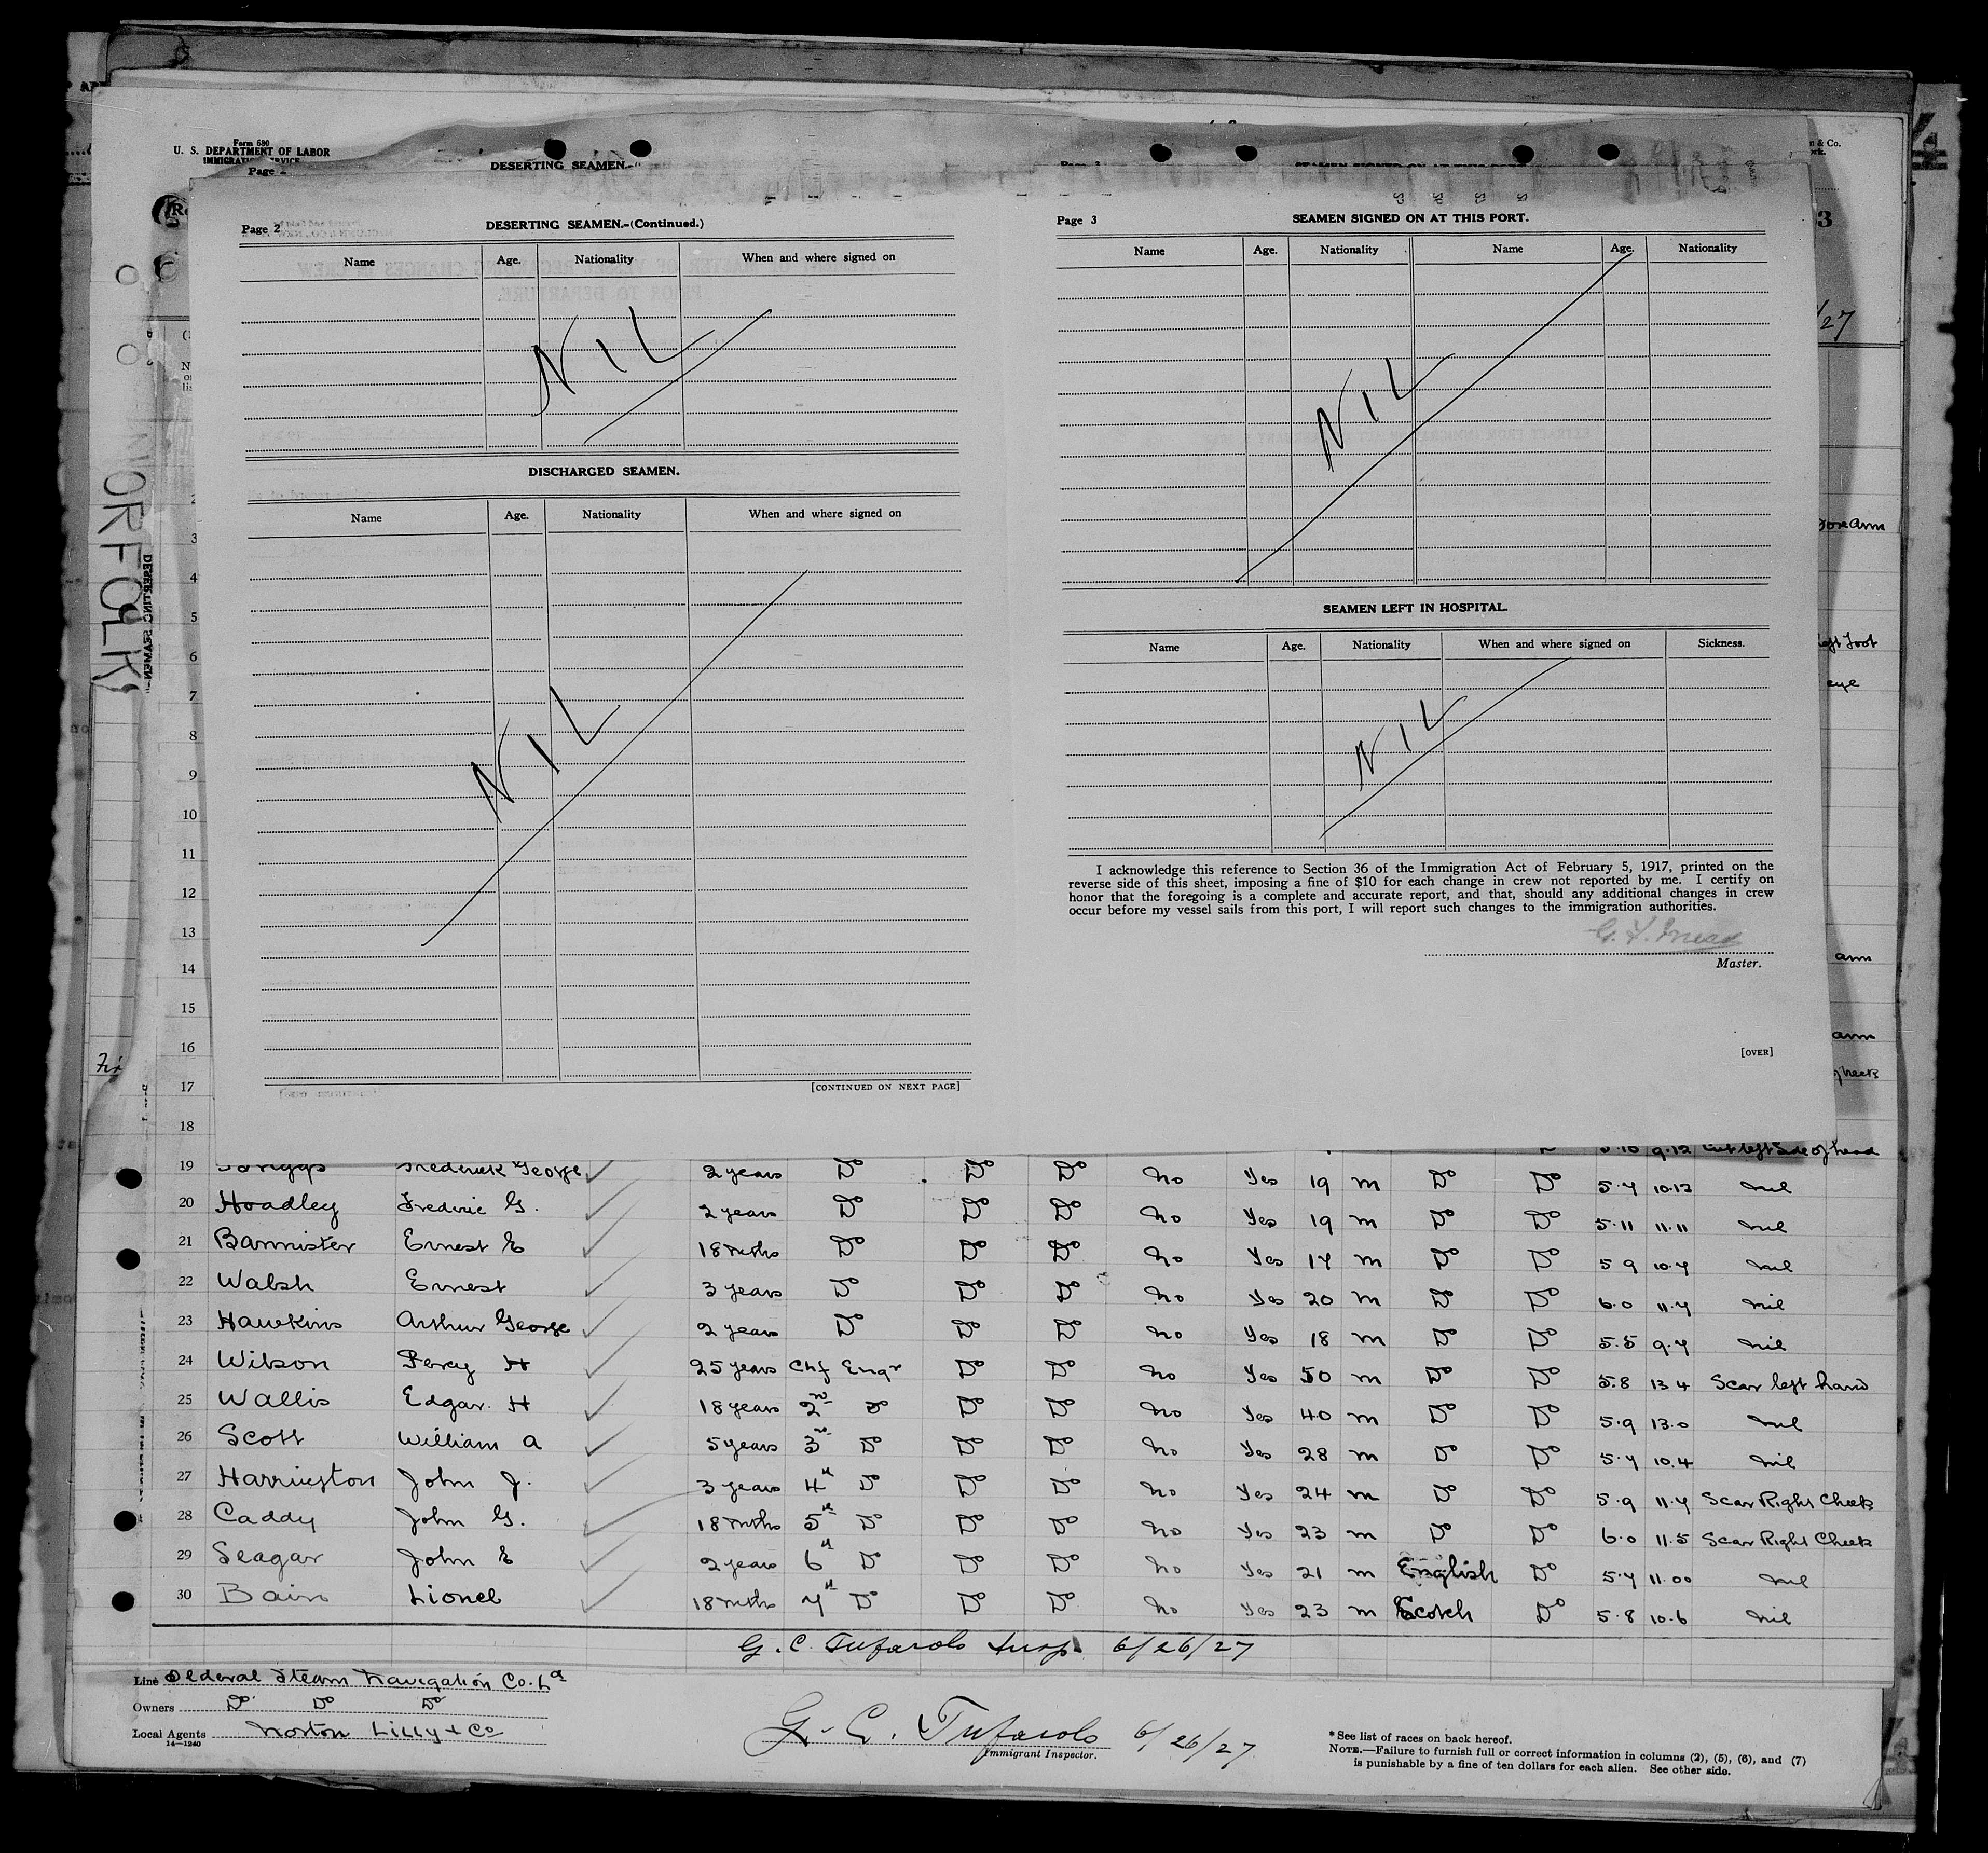 Form 680
U. S. DEPARTMENT OF LABOR
DESERTING SEAMEN.
Page 2
DESERTING SEAMEN.-(Continued.)
Name Age. Nationality When and where signed on
NIL
DISCHARGED SEAMEN.
Name Age. Nationality When and where signed on
NIL
[CONTINUED ON NEXT PAGE]
Page 3
SEAMEN SIGNED ON AT THIS PORT.
Name Age. Nationality Name Age. Nationality
NIL
SEAMEN LEFT IN HOSPITAL.
Name Age. Nationality When and where signed on Sickness.
NIL
I acknowledge this reference to Section 36 of the Immigration Act of February 5, 1917, printed on the
reverse side of this sheet, imposing a fine of $10 for each change in crew not reported by me. I certify on
honor that the foregoing is a complete and accurate report, and that, should any additional changes in crew
occur before my vessel sails from this port, I will report such changes to the immigration authorities.
Master.
[OVER]
NORFOLK
3
4
5
6
7
8
9
10
11
12
13
14
15
16
17
18 5.10 9.12 Cut left side of head
19 Frederick George 2 years Do Do Do No Yes 19 m Do Do 5.7 10.12 nil
20 Hoadley Frederic G. 2 years Do Do Do No Yes 19 m Do Do 5.11 11.11 nil
21 Bannister Ernest E 18 mths Do Do Do No Yes 17 m Do Do 5 9 10.7 nil
22 Walsh Ernest 3 years Do Do Do No Yes 20 m Do Do 6.0 11.7 nil
23 Hawkins Arthur George 2 years Do Do Do No Yes 18 m Do Do 5.5 9.7 nil
24 Wilson Percy H 25 years Chf Engr Do Do No Yes 50 m Do Do 5.8 13 4 Scar left hand
25 Wallis Edgar H 18 years 2nd Do Do Do No Yes 40 m Do Do 5.9 13.0 nil
26 Scott William A 5 years 3rd Do Do Do No Yes 28 m Do Do 5.7 10.4 nil
27 Harrington John J. 3 years 4th Do Do Do No Yes 24 m Do Do 5.9 11.7 Scar Right Cheek
28 Caddy John G. 18 mths 5th Do Do Do No Yes 23 m Do Do 6.0 11.5 Scar Right Cheek
29 Seagar John E 2 years 6th Do Do Do No Yes 21 m English Do 5.7 11.00 nil
30 Bain Lionel 18 mths 7th Do Do Do No Yes 23 m Scotch Do 5.8 10.6 nil
G. C. Tufarolo Insp. 6/26/27
Line Federal Steam Navigation Co. Ld
Owners Do Do Do
Local Agents Norton Lilly & Co
14—1240
G. C. Tufarolo 6/26/27
Immigrant Inspector.
* See list of races on back hereof.
NOTE.—Failure to furnish full or correct information in columns (2), (5), (6), and (7)
is punishable by a fine of ten dollars for each alien. See other side.